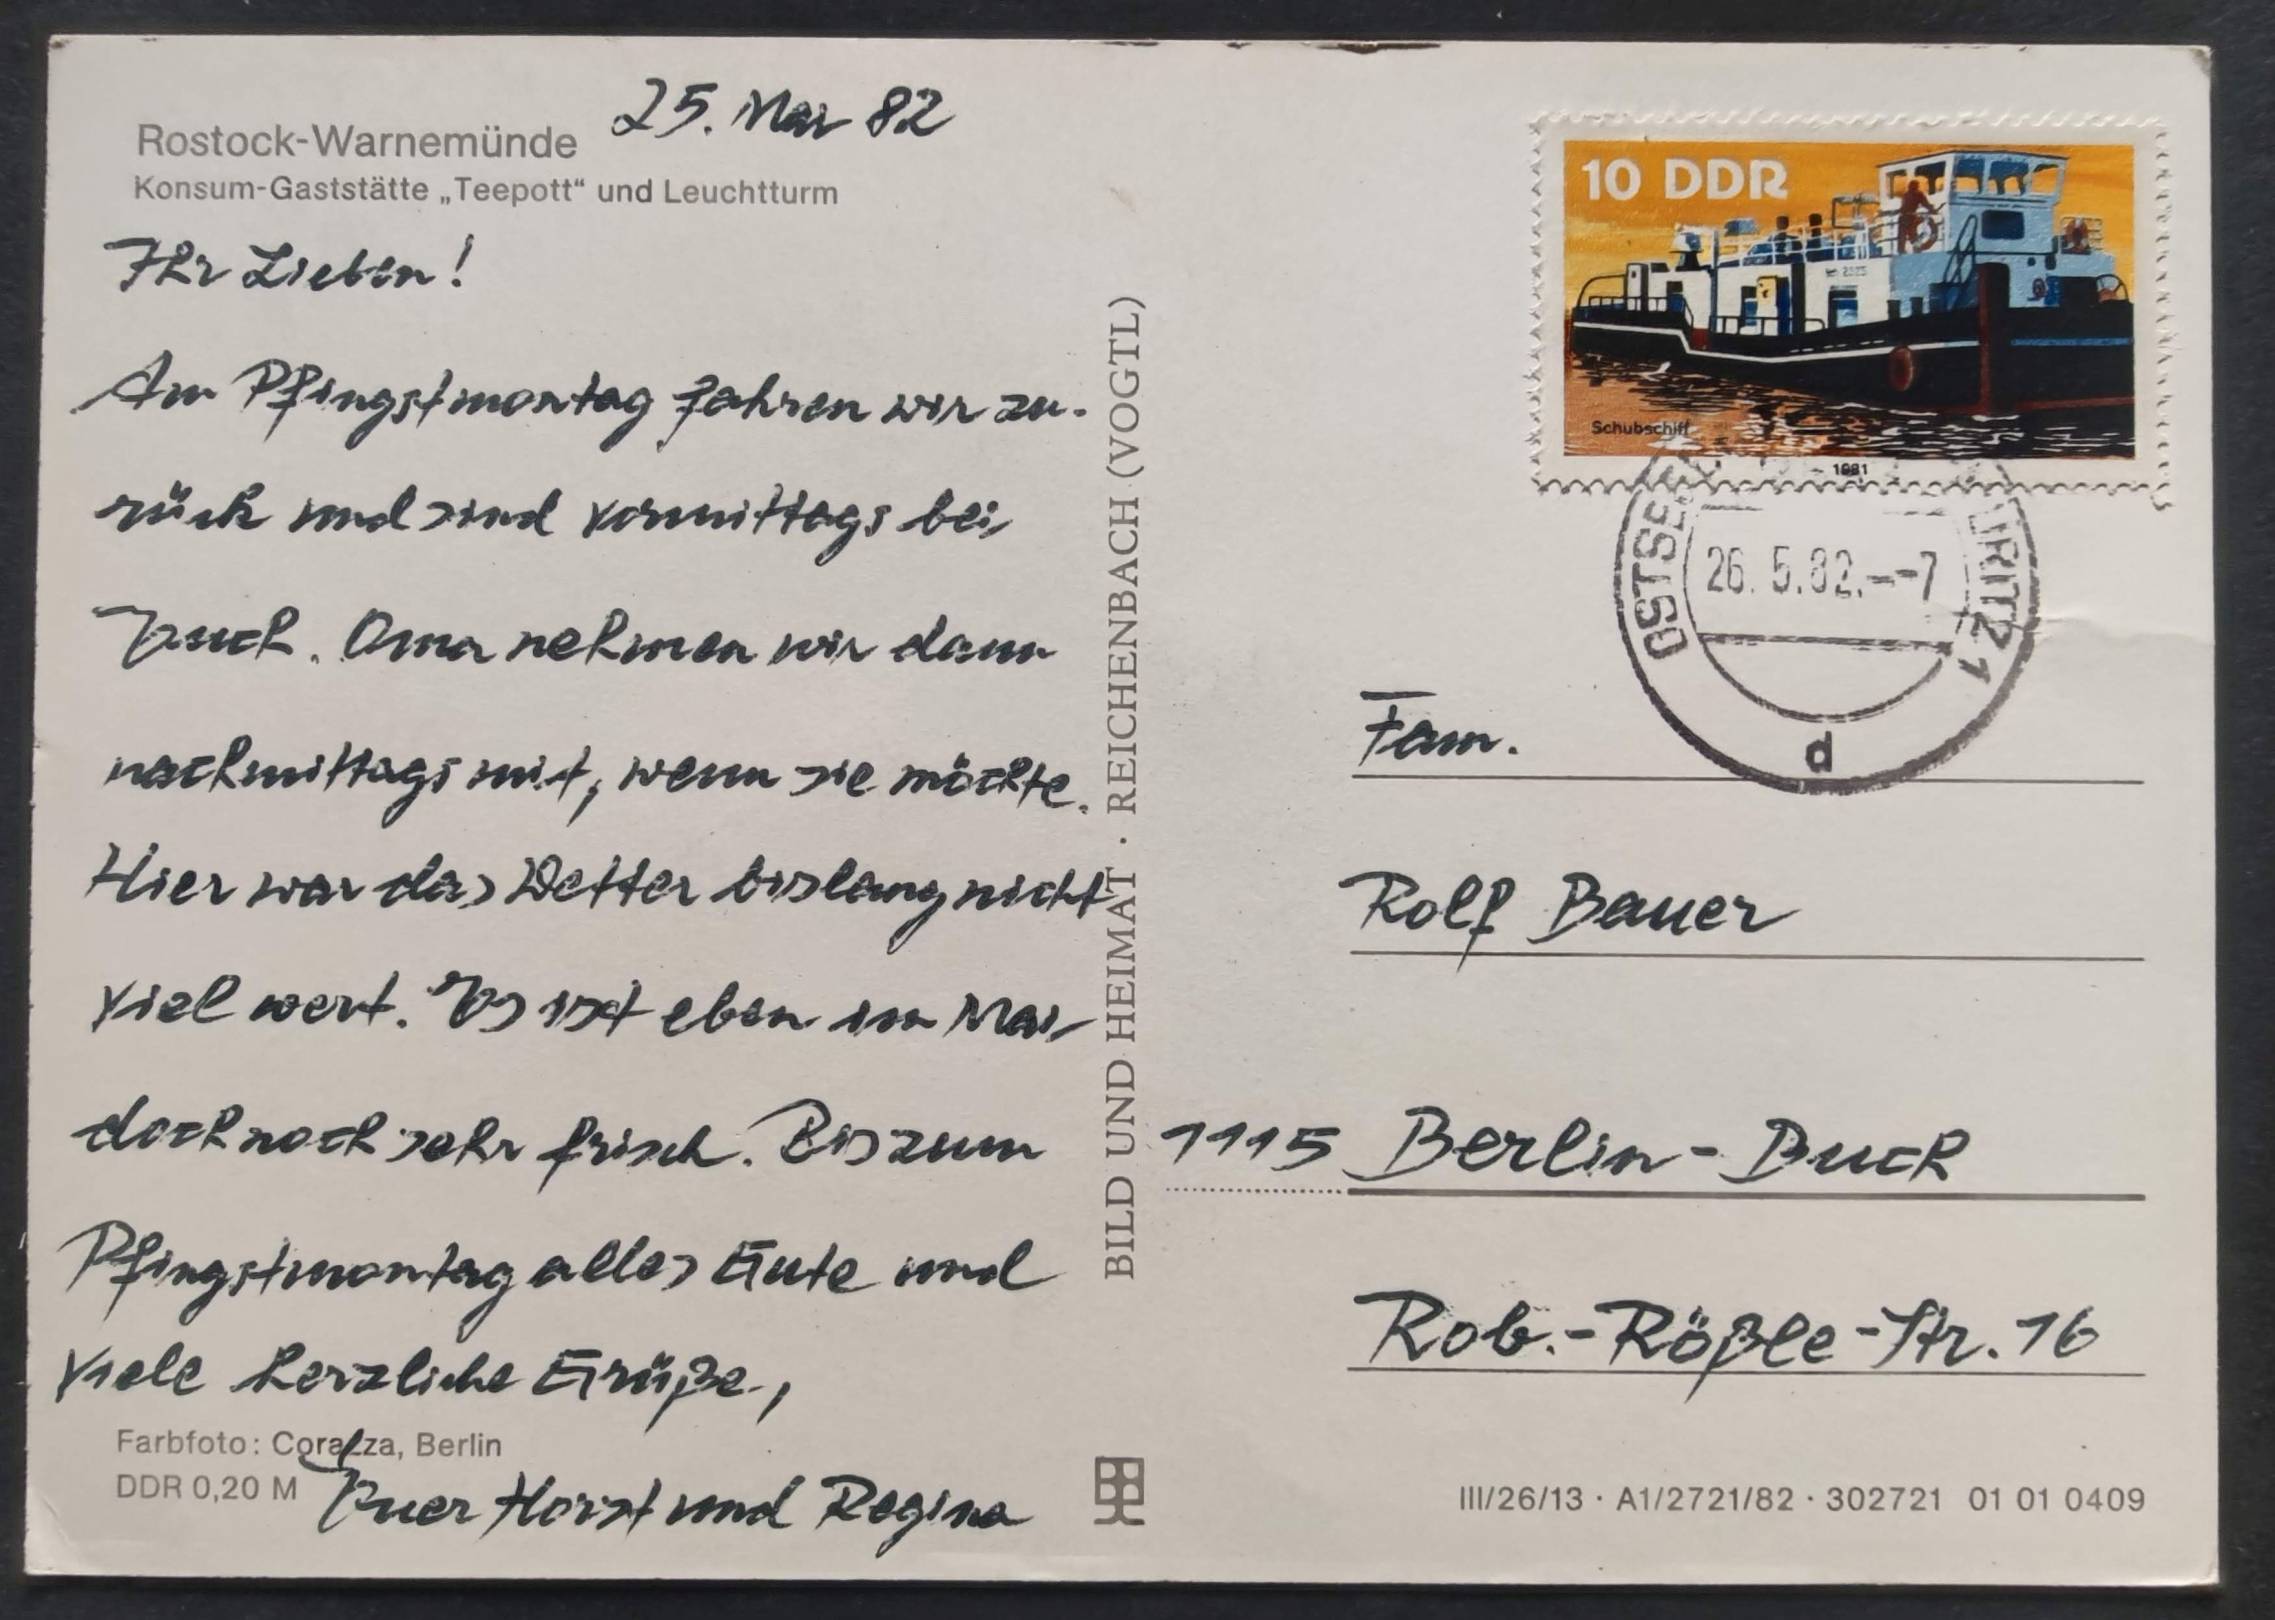 Rostock-Warnemünde
25. Mai 82
Konsum-Gaststätte „Teepott“ und Leuchtturm
Ihr Lieben!
Am Pfingstmontag fahren wir zu-
rück und sind vormittags bei
Euch. Oma nehmen wir dann
nachmittags mit, wenn sie möchte.
Hier war das Wetter bislang nicht
viel wert. Es ist eben im Mai
doch noch sehr frisch. Bis zum
Pfingstmontag alles Gute und
viele herzliche Grüße,
Euer Horst und Regina
Farbfoto: Corazza, Berlin
DDR 0,20 M
BILD UND HEIMAT · REICHENBACH (VOGTL)
10 DDR
Schubschiff
1981
OSTSEE
26.5.82.--7
1
d
Fam.
Rolf Bauer
1115 Berlin-Buch
Rob.-Rößle-Str. 16
III/26/13 · A1/2721/82 · 302721 01 01 0409